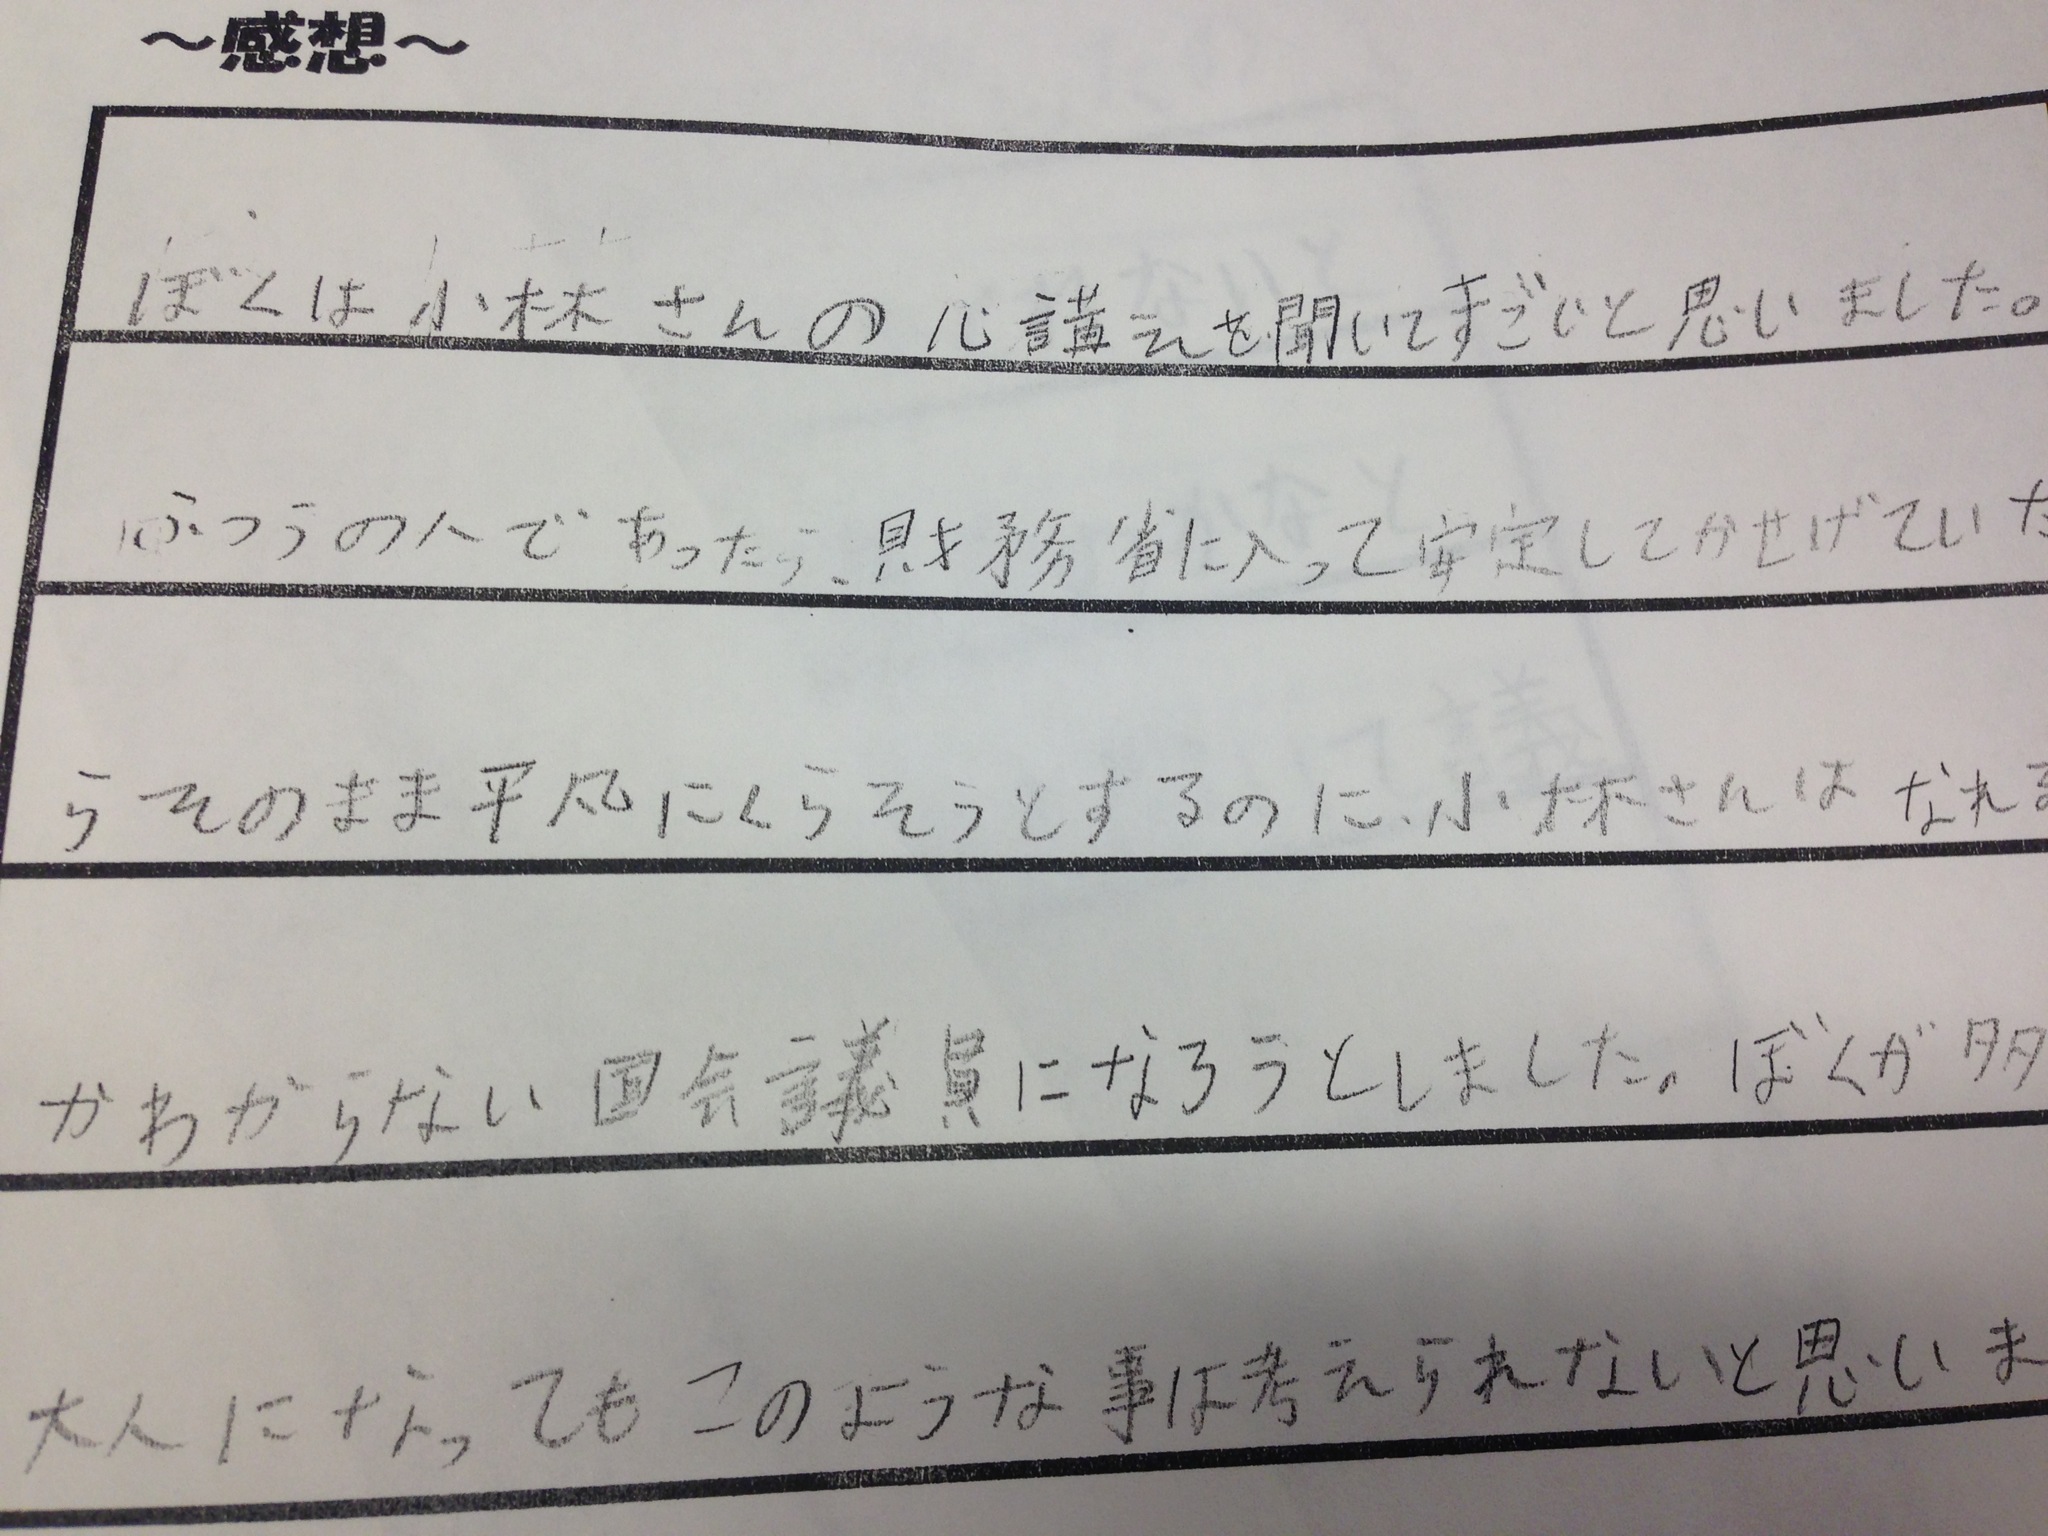 ～感想～
ぼくは小林さんの心講えを聞いてすごいと思いました。
ふつうの人であったら、財務省に入って安定してかせげていた
らそのまま平凡にくらそうとするのに、小林さんはなれる
かわからない国会議員になろうとしました。ぼくが多
大人になってもこのような事は考えられないと思いま